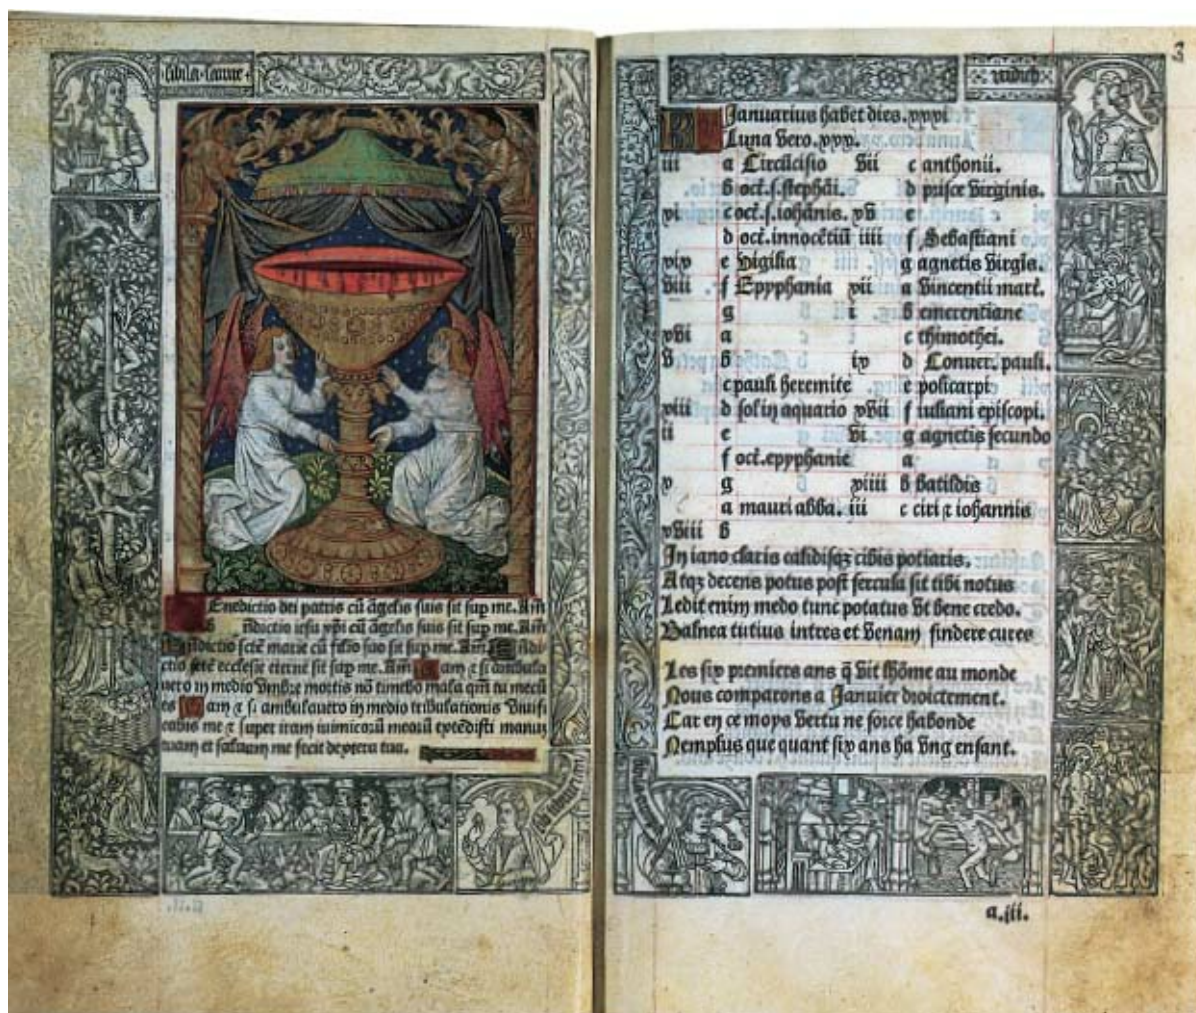 sibila
Enedictio dei patris cū āgelis suis sit sup me. Am̄
ndictio iesu xp̄i cū āgelis suis sit sup me. Am̄
dictio scte marie cū filio suo sit sup me. Am̄ ndi
ctio scte ecclesie eterne sit sup me. Am̄ am ⁊ si ambula
uero in medio vmbre mortis nō timebo mala qm̄ tu mecū
es am ⁊ si ambulauero in medio tribulationis viuifi
cabis me ⁊ super iram inimicorū meorū extēdisti manum
tuam et saluum me fecit dextera tua.
3
iudich
Januarius habet dies. xxxi
Luna vero. xxx.
iii a Circūcisio vii c anthonii.
b oct. s. stephāi. d prisce virginis.
xi c oct. s. iohānis. xv e
d oct. innocētiū iiii f Sebastiani
xix e vigilia g agnetis virgīs.
viii f Epyphania xii a vincentii mart.
g i b emerentiane
xvi a c thimothei.
v b ix d Conuer. pauli.
c pauli heremite e policarpi
xiii d sol in aquario xvii f iuliani episcopi.
ii e vi g agnetis secundo
f oct. epyphanie a
x g xiiii b batildis
a mauri abba. iii c ciri ⁊ iohannis
xviii b
In iano claris calidisqꝫ cibis potiaris.
Atqꝫ decens potus post fercula sit tibi notus
Ledit enim medo tunc potatus vt bene credo.
Balnea tutius intres et venam findere cures
Les six premiers ans q̄ vit lhōme au monde
Nous comparons a Januier droictement.
Car en ce moys vertu ne force habonde
Nemplus que quant six ans ha vng enfant.
a.iii.